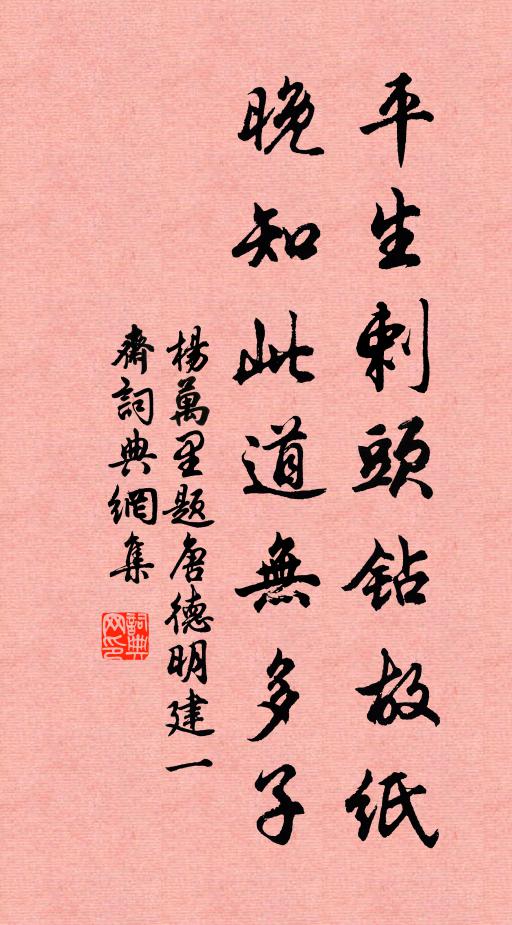 平生刺頭鉆故紙
晚知此道無多子
楊萬里題唐德明建一
齋詞典網集
詞典網印